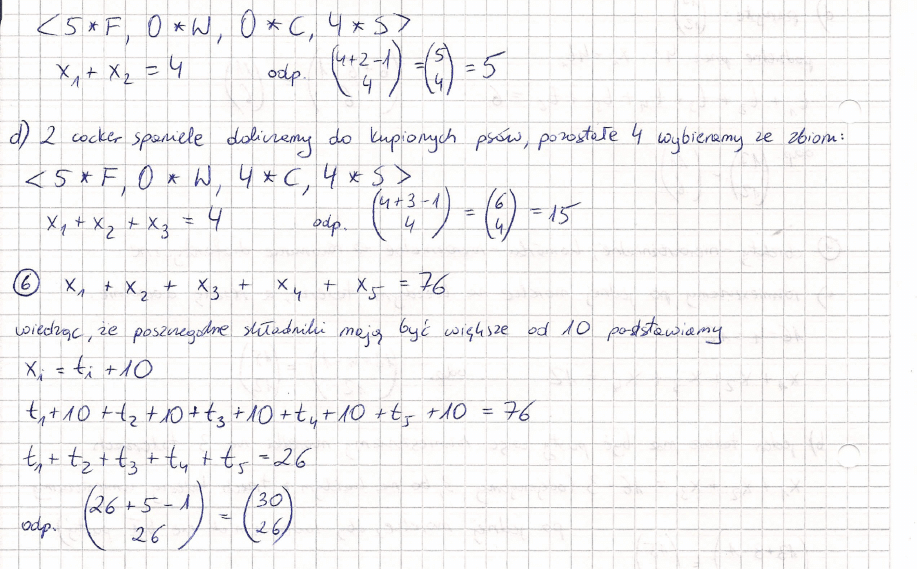 < 5 * F, 0 * W, 0 * C, 4 * S >
x₁ + x₂ = 4 odp. (4+2-1 4) = (5 4) = 5
d) 2 cocker spaniele doliczamy do kupionych psów, pozostałe 4 wybieramy ze zbioru:
< 5 * F, 0 * W, 4 * C, 4 * S >
x₁ + x₂ + x₃ = 4 odp. (4+3-1 4) = (6 4) = 15
⑥ x₁ + x₂ + x₃ + x₄ + x₅ = 76
wiedząc, że poszczególne składniki mają być większe od 10 podstawiamy
xᵢ = tᵢ + 10
t₁+10 + t₂+10 + t₃+10 + t₄+10 + t₅+10 = 76
t₁ + t₂ + t₃ + t₄ + t₅ = 26
odp. (26+5-1 26) = (30 26)